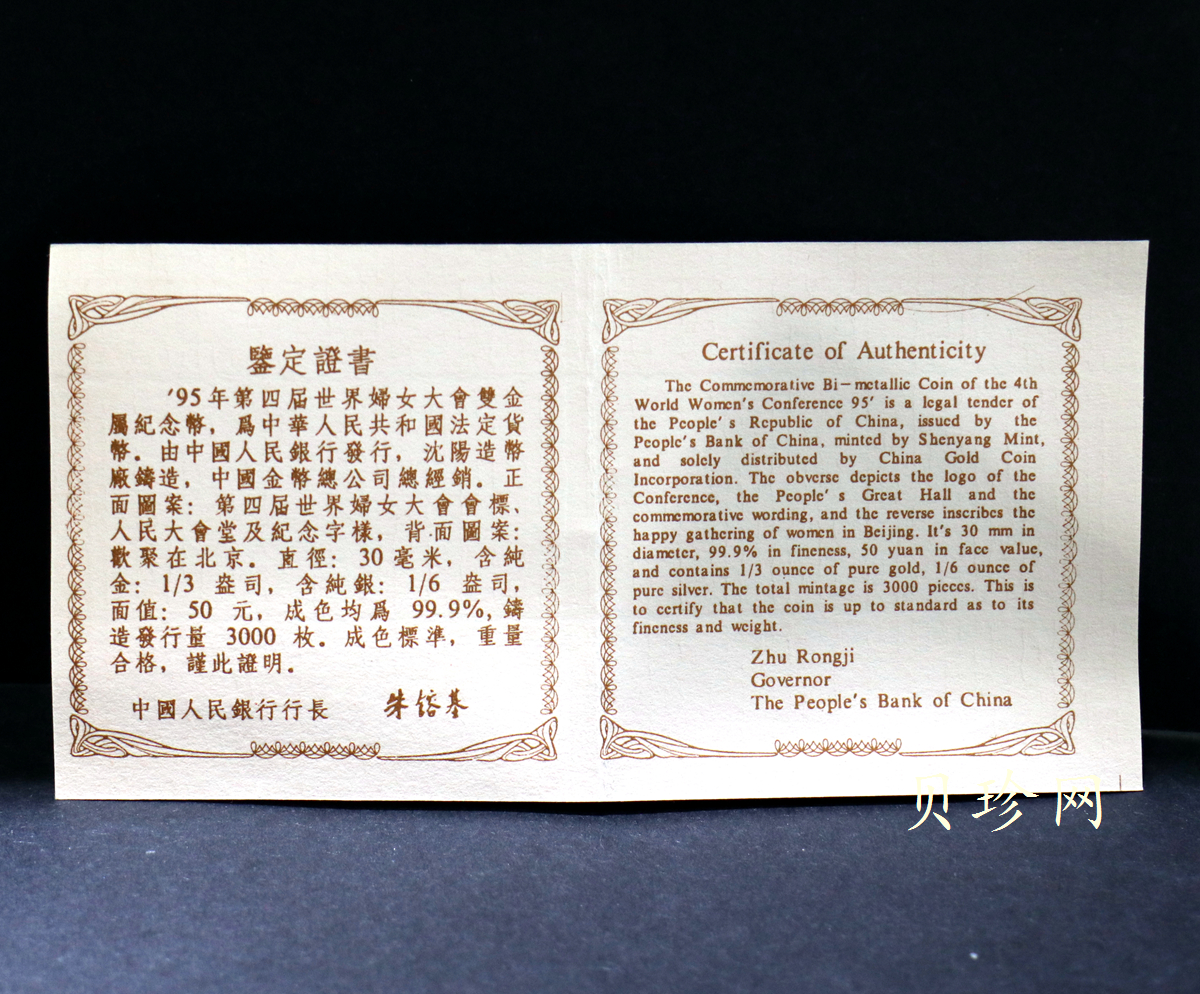 鑒定證書
'95年第四届世界婦女大會雙金
屬紀念幣，爲中華人民共和國法定貨
幣。由中國人民銀行發行，沈陽造幣
廠鑄造，中國金幣總公司總經銷。正
面圖案：第四届世界婦女大會會標、
人民大會堂及紀念字樣，背面圖案：
歡聚在北京。直徑：30毫米，含純
金：1/3 盎司，含純銀：1/6 盎司，
面值：50 元，成色均爲 99.9%,鑄
造發行量 3000 枚。成色標準，重量
合格，謹此證明。
中國人民銀行行長 朱鎔基
Certificate of Authenticity
The Commemorative Bi-metallic Coin of the 4th
World Women's Conference 95' is a legal tender of
the People's Republic of China, issued by the
People's Bank of China, minted by Shenyang Mint,
and solely distributed by China Gold Coin
Incorporation. The obverse depicts the logo of the
Conference, the People's Great Hall and the
commemorative wording, and the reverse inscribes the
happy gathering of women in Beijing. It's 30 mm in
diameter, 99.9% in fineness, 50 yuan in face value,
and contains 1/3 ounce of pure gold, 1/6 ounce of
pure silver. The total mintage is 3000 pieces. This is
to certify that the coin is up to standard as to its
fineness and weight.
Zhu Rongji
Governor
The People's Bank of China
贝珍网